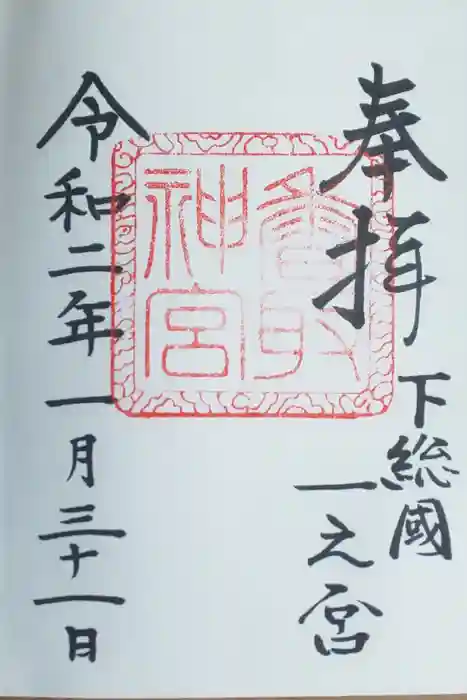 奉拝
下総國
一之宮
香取
神宮
令和二年一月三十一日